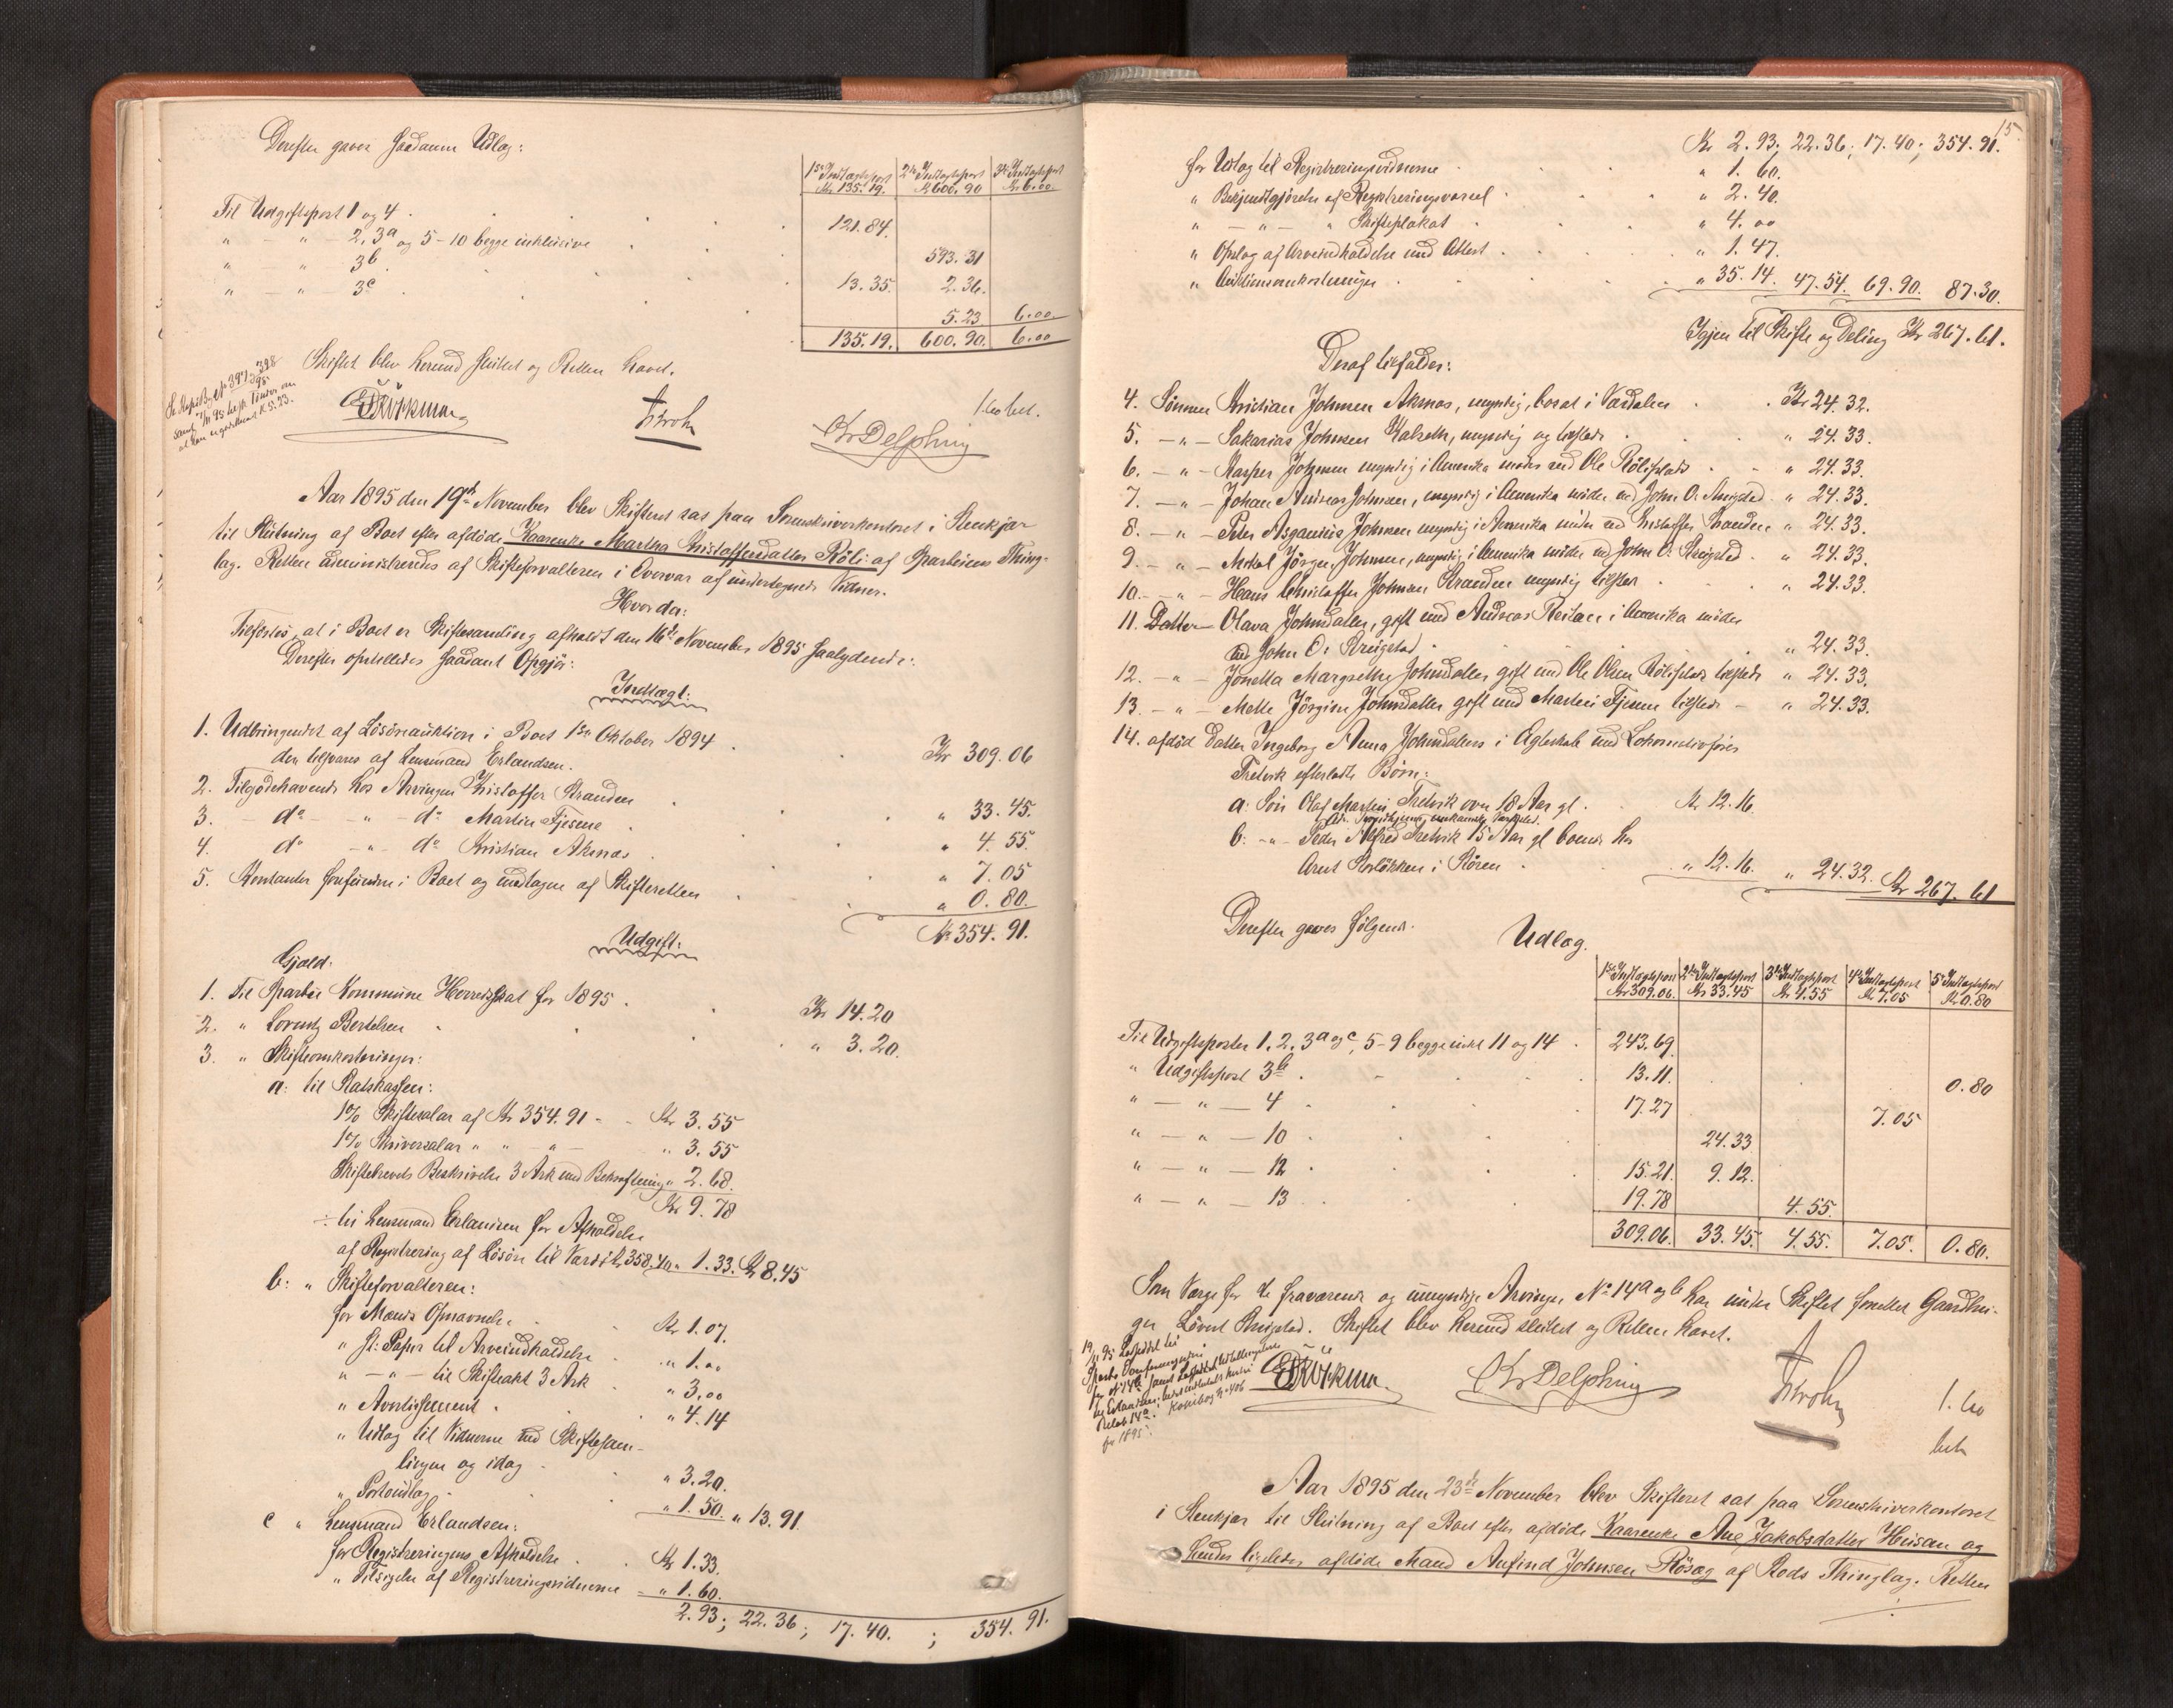 Derefter gaves saadanne Udlæg:
1ste Indtægtspost 2den Indtægtspost 3die Indtægtspost
Kr 135.19. Kr 600.90 Kr 6.00
Til Udgiftspost 1 og 4 . 121.84.
" — " — 2, 3a og 5-10 begge inklusive . 593.31
" " 3b 13.35. 2.36.
" — " 3c . 5.23 6.00
135.19. 600.90. 6.00
Skiftet blev herved sluttet og Retten hævet.
1.60 bet.
Krohn
Chr Delphin
Aar 1895 den 19de November blev Skifteret sat paa Sorenskriverkontoret i Stenkjær
til Slutning af Boet efter afdøde Kaarenke Martha Kristoffersdatter Röli af Sparbuens Thing-
lag. Retten administreredes af Skifteforvalteren i Overvær af undertegnede Vidner.
Hvorda:
Tilførtes, at i Boet er Skiftesamling afholdt den 16de November 1895 saalydende:.
Derefter opstilledes saadant Opgjör:
Indtægt:
1. Udbringendet af Lösöreauktion i Boet 1ste Oktober 1894
der tilsvares af Lensmand Erlandsen. Kr 309.06
2. Tilgodehavende hos Arvingen Kristoffer Stranden " 33.45.
3. — do — " — do Martin Fjesene . " 4.55.
4. do — " — do Kristian Aksnæs . " 7.05
5. Kontanter forefundne i Boet og modtagne af Skifteretten " 0.80.
Kr 354.91.
Udgift:
Gjæld:
1. Til Sparbu Kommune Herredsskat for 1895 . Kr 14.20
2. " Lorentz Bertelsen " 3.20.
3. " Skifteomkostninger:
a: til Statskassen:
1% Skiftesalær af Kr 354.91 - Kr 3.55
1% Skriversalær " " " — " 3.55
Skiftebrevets Beskrivelse 3 Ark med Bekræftning " 2.68.
Kr 9.78
÷ til Lensmand Erlandsen for Afholdelse
af Registrering af Lösöre til Værdi Kr 358.40 " 1.33. Kr 8.45
b: " Skifteforvalteren:
for Mænds Opnævnelse Kr 1.07.
" St: Papir til Arveindkaldelse . " 1.00
" — " — til Skifteakt 3 Ark " 3.00
" Avertissement . " 4.14
" Udlæg til Vidnerne ved Skiftesam-
lingen og idag . " 3.20.
" Portoudlæg . " 1.50. " 13.91.
c " Lensmand Erlandsen:
for Registreringens Afholdelse . Kr 1.33.
" Tilsigelse af Registreringsvidnerne " 1.60.
2.93; 22.36; 17.40. ; 354.91.
15
Kr 2.93; 22.36; 17.40; 354.91.
for Udlæg til Registreringsvidnerne . " 1.60.
" Bekjendtgjörelse af Registreringsvarsel . " 2.40.
" — " — " Skifteplakat . " 4.00
" Opslag af Arveindkaldelse med Attest . " 1.47.
" Auktionsomkostninger . " 35.14. 47.54. 69.90. 87.30.
Igjen til Skifte og Deling Kr 267.61.
Deraf tilfalder:
4. Sönnen Kristian Johnsen Aksnæs, myndig, bosat i Værdalen . Kr 24.32.
5. — " — Sakarias Johnsen Kalseth, myndig og tilstede . " 24.33.
6. — " — Kasper Johnsen myndig i Amerika möder ved Ole Röliplads . " 24.33.
7. — " — Johan Andreas Johnsen, myndig i Amerika möder ved John O. Strugstad . " 24.33.
8. — " — Peter Asganius Johnsen myndig i Amerika möder ved Kristoffer Stranden " 24.33.
9. — " — Mikal Jörgen Johnsen, myndig i Amerika möder ved John O. Strugstad . " 24.33.
10. — " — Hans Christoffer Johnsen Stranden myndig tilstede . " 24.33.
11. Datter Olava Johnsdatter, gift med Andreas Reitan i Amerika möder
ved John O. Strugstad . " 24.33.
12. — " — Jonetta Margrethe Johnsdatter gift med Ole Olsen Röliplads tilstede " 24.33.
13. — " — Mette Jörgine Johnsdatter gift med Martin Fjesene tilstede — " 24.33.
14. afdöd Datter Ingeborg Anna Johnsdatters i Ægteskab med Lokomotivförer
Fredrik efterladte Börn:
a: Sön Olaf Martin Fredrik over 18 Aar gl . Kr 12.16.
b: — " — Peder Alfred Fredrik 15 Aar gl boende hos
Arnt Storlökken i Stören . " 12.16. " 24.32. Kr 267.61
Derefter gaves fölgende
Udlæg.
1ste Indtægtspost 2den Indtægtspost 3die Indtægtspost 4de Indtægtspost 5te Indtægtspost
Kr 309.06. Kr 33.45 Kr 4.55 Kr 7.05 Kr 0.80
Til Udgiftsposter 1. 2. 3a og c, 5-9 begge inkl 11 og 14 . 243.69.
" Udgiftspost 3b . 13.11. 0.80
" — " — 4 . 17.27 7.05
" — " — 10 . 24.33
" — " — 12 . 15.21. 9.12.
" — " — 13 . 19.78 4.55.
309.06. 33.45. 4.55. 7.05. 0.80.
Som Værge for de fraværende og umyndige Arvinger No 14a og b har under Skiftet fungeret Gaardbru-
ger Lövert Strugstad. Skiftet blev herved sluttet og Retten hævet.
Chr Delphin
Krohn
1.60
bet
Aar 1895 den 23de November blev Skifteret sat paa Sorenskriverkontoret
i Stenkjær til Slutning af Boet efter afdöde Kaarenke Ane Jakobsdatter Heisan og
hendes ligeledes afdöde Mand Anfind Johnsen Rösæg af Stods Thinglag. Retten